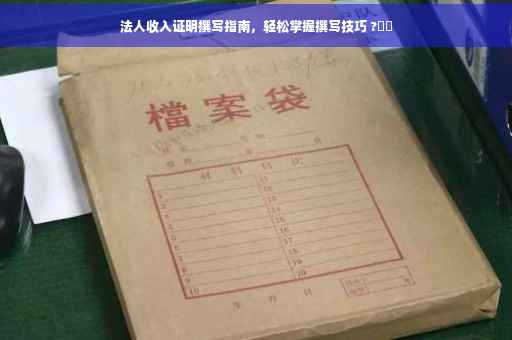 法人收入证明撰写指南，轻松掌握撰写技巧 ?
檔案袋
材料目次
1 11
2 12
3 13
4 14
5 15
6 16
7 17
8 18
9 19
10 20
年 月 日